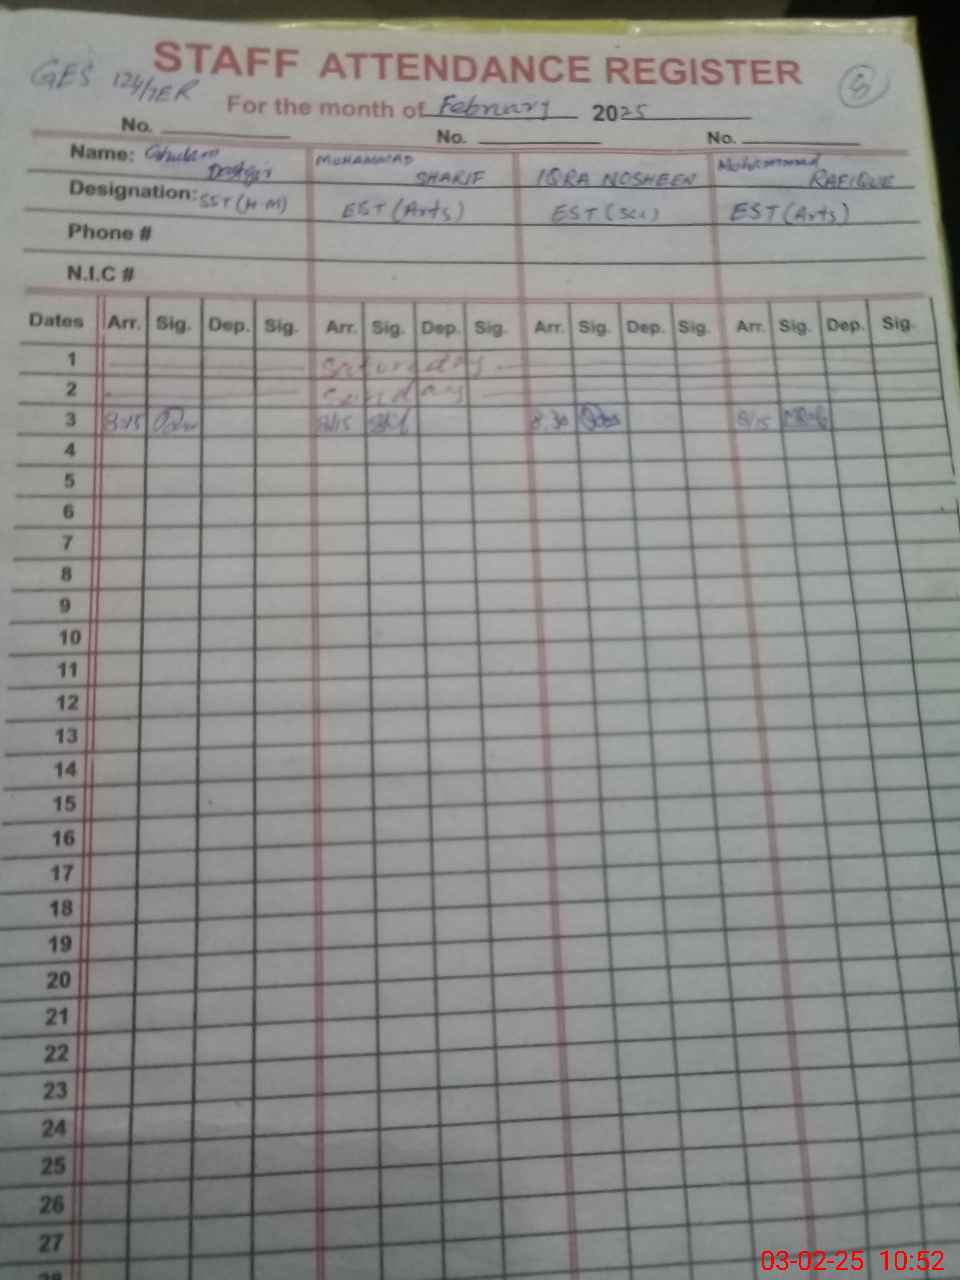 STAFF ATTENDANCE REGISTER
GES 124/7ER
For the month of February 2025
No. No. No.
Name: Ghulam Dastgir MUHAMMAD SHARIF IQRA NOSHEEN Muhammad RAFIQUE
Designation: SST (H.M) EST (Arts) EST (Sci) EST (Arts)
Phone #
N.I.C #
Dates Arr. Sig. Dep. Sig. Arr. Sig. Dep. Sig. Arr. Sig. Dep. Sig. Arr. Sig. Dep. Sig.
1 Saturday
2 Sunday
3 8:15 8/15 8.30 8/15
4
5
6
7
8
9
10
11
12
13
14
15
16
17
18
19
20
21
22
23
24
25
26
27
28
03-02-25 10:52